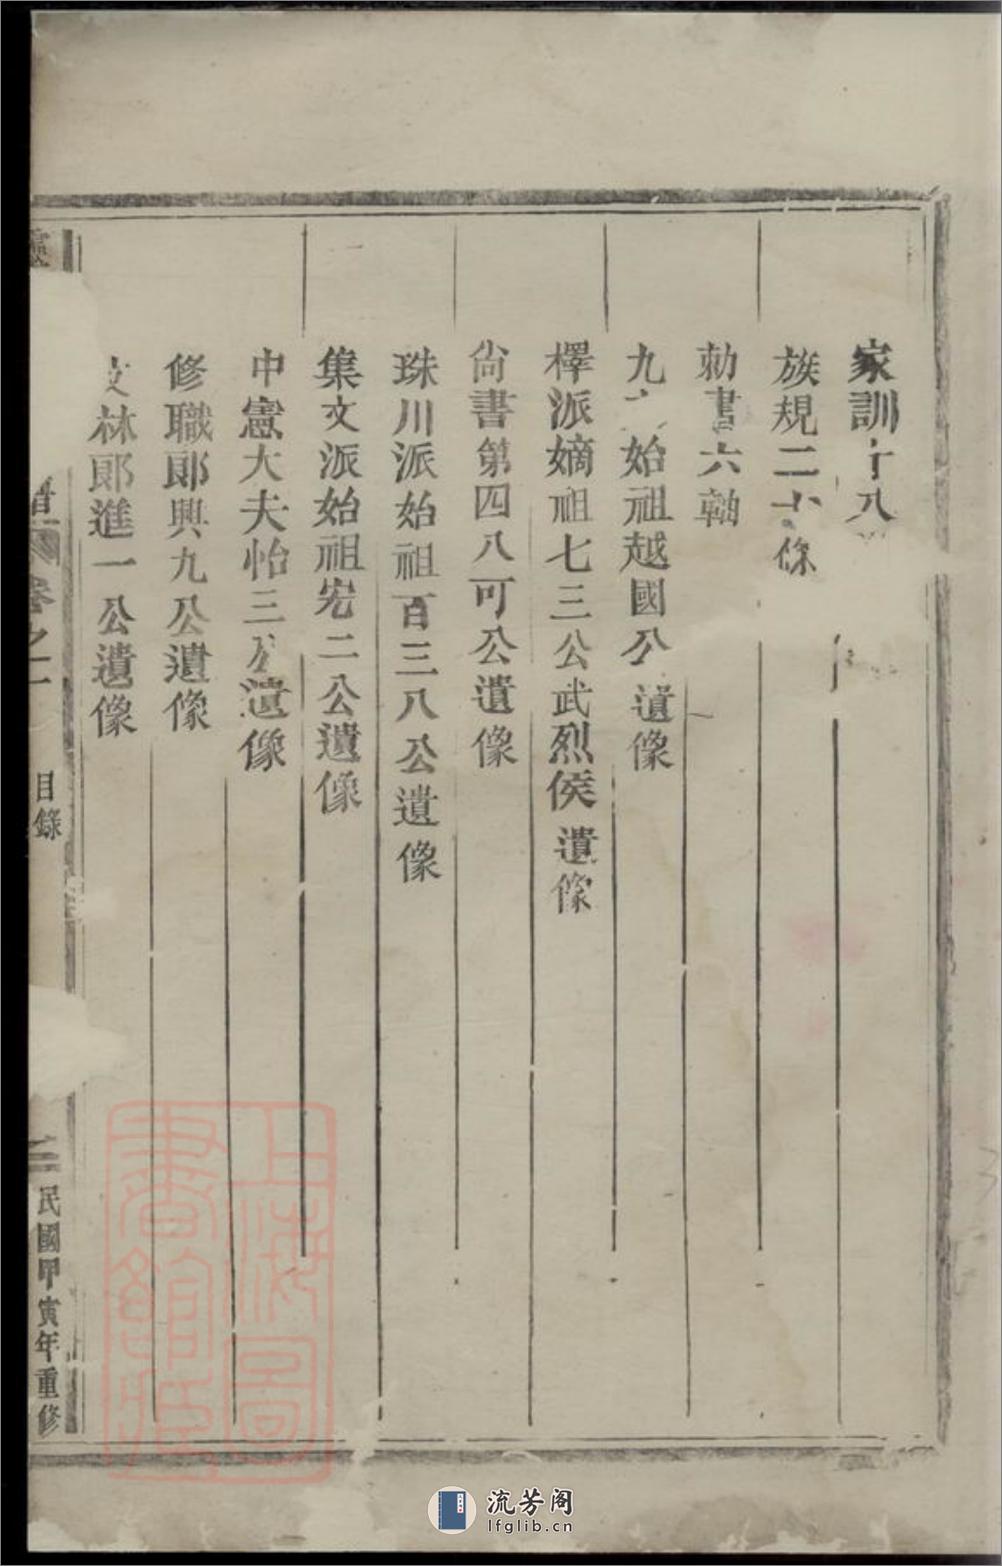 家訓十八
族規二十條
勅書六軸
九 始祖越國公遺像
檡派嫡祖七三公武烈侯遺像
尚書第四八可公遺像
珠川派始祖百三八公遺像
集文派始祖宏二公遺像
中憲大夫怡三公遺像
修職郞興九公遺像
文林郞進一公遺像
譜 卷之一 目錄 二 民國甲寅年重修
上海圖書館藏
流芳阁
lfglib.cn